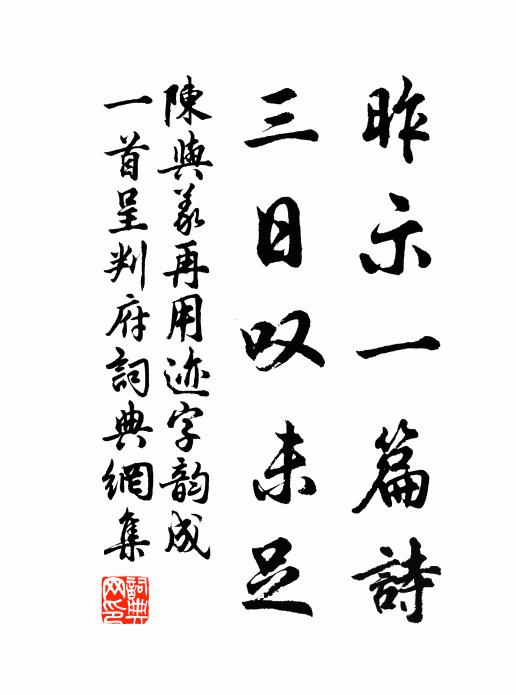 昨示一篇詩
三日叹未足
陳與義再用迹字韵成
一首呈判府詞典網集
詞典
网印